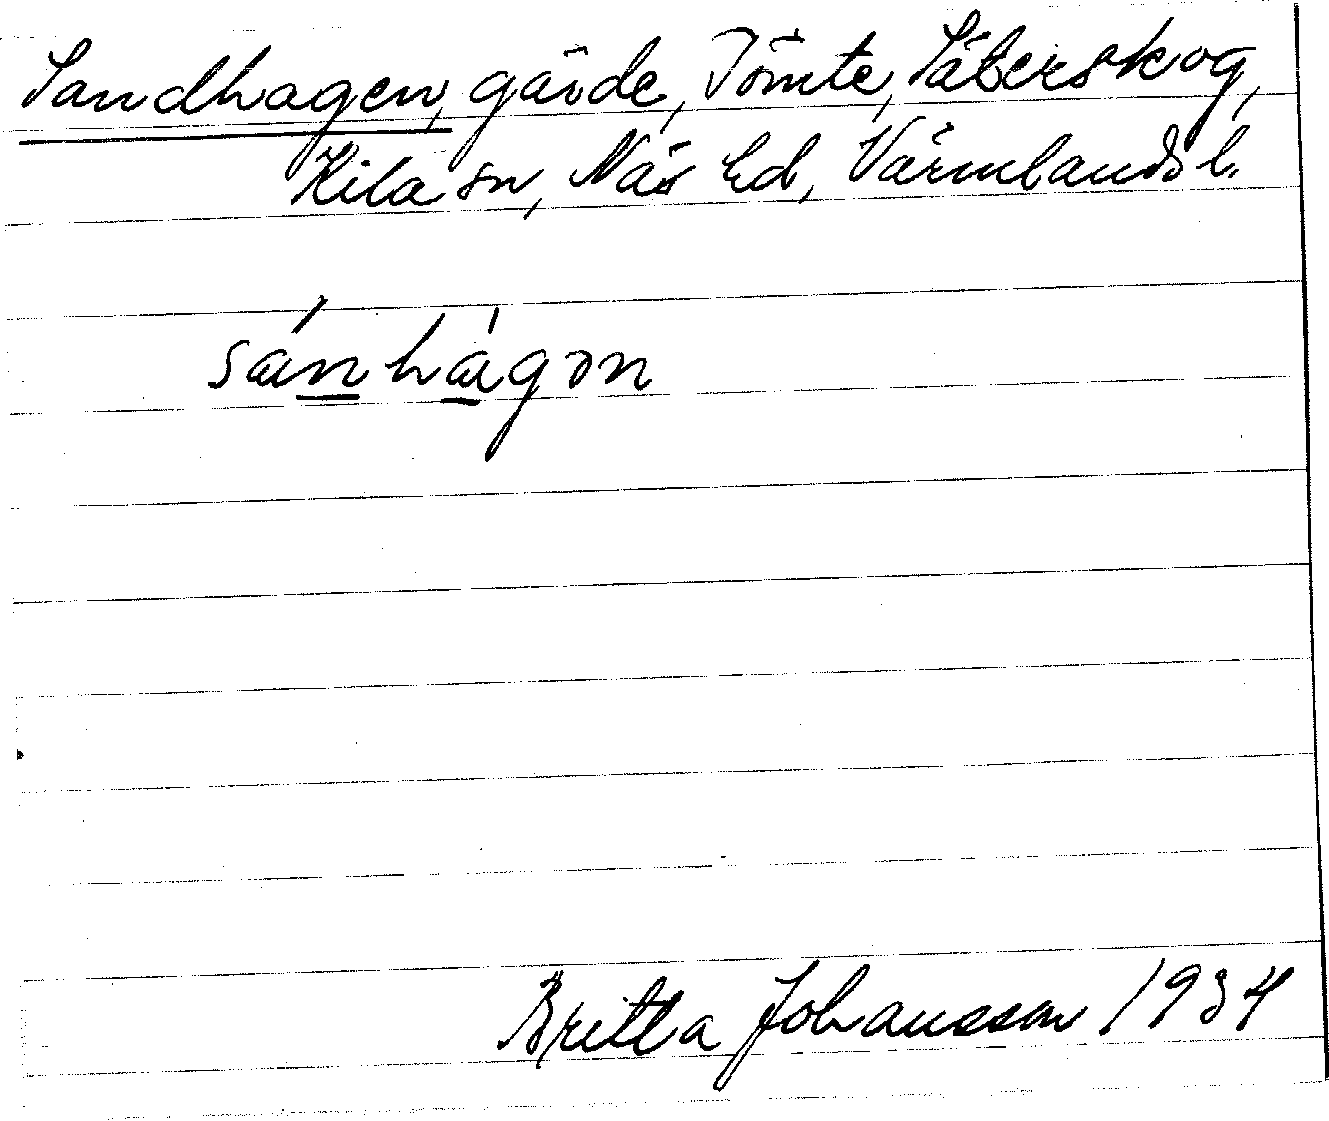 Sandhagen, gärde, Tömte, Säterskog,
Kila sn, Näs hd, Värmlands l.
sánhágən
Britta Johansson 1934